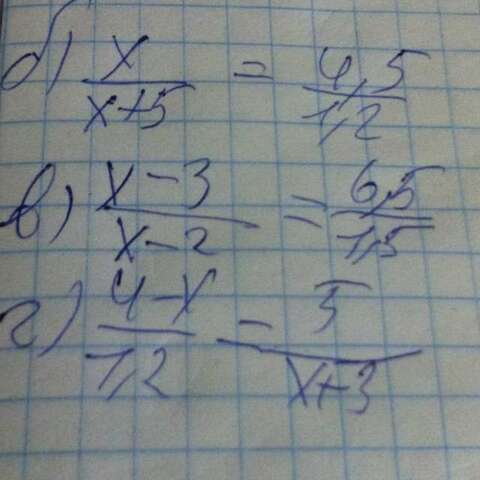 б) x/(x+5) = 4,5/1,2
в) (x-3)/(x-2) = 6,5/1,5
г) (4-x)/1,2 = 5/(x+3)